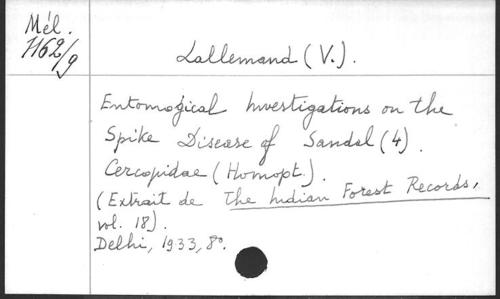 Mél.
1162/9
Lallemand (V.).
Entomogical Investigations on the
Spike Disease of Sandal (4).
Cercopidae (Homopt.).
(Extrait de The Indian Forest Records,
vol. 18).
Delhi, 1933, 8°.